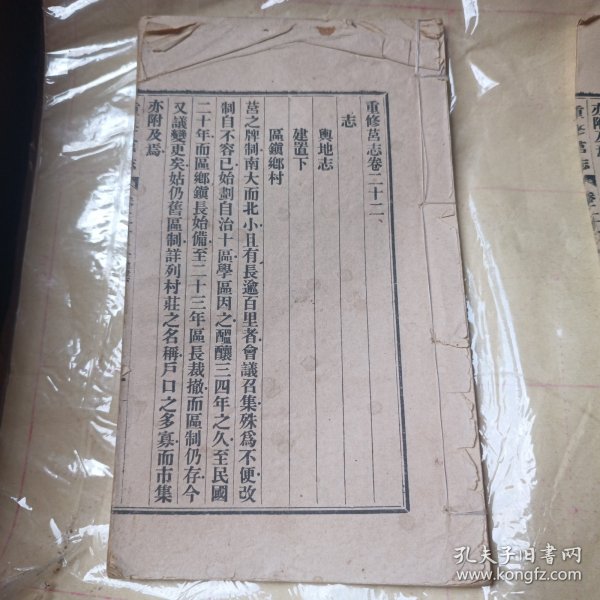 重修莒志卷二十二、
志
輿地志
建置下
區鎮鄉村
莒之牌制南大而北小且有長逾百里者會議召集殊為不便改
制自不容已始劃自治十區學區因之醞釀三四年之久至民國
二十年而區鄉鎮長始備至二十三年區長裁撤而區制仍存今
又議變更矣姑仍舊區制詳列村莊之名稱戶口之多寡而市集
亦附及焉
亦附及焉
重修莒志
孔夫子旧书网
www.kongfz.com